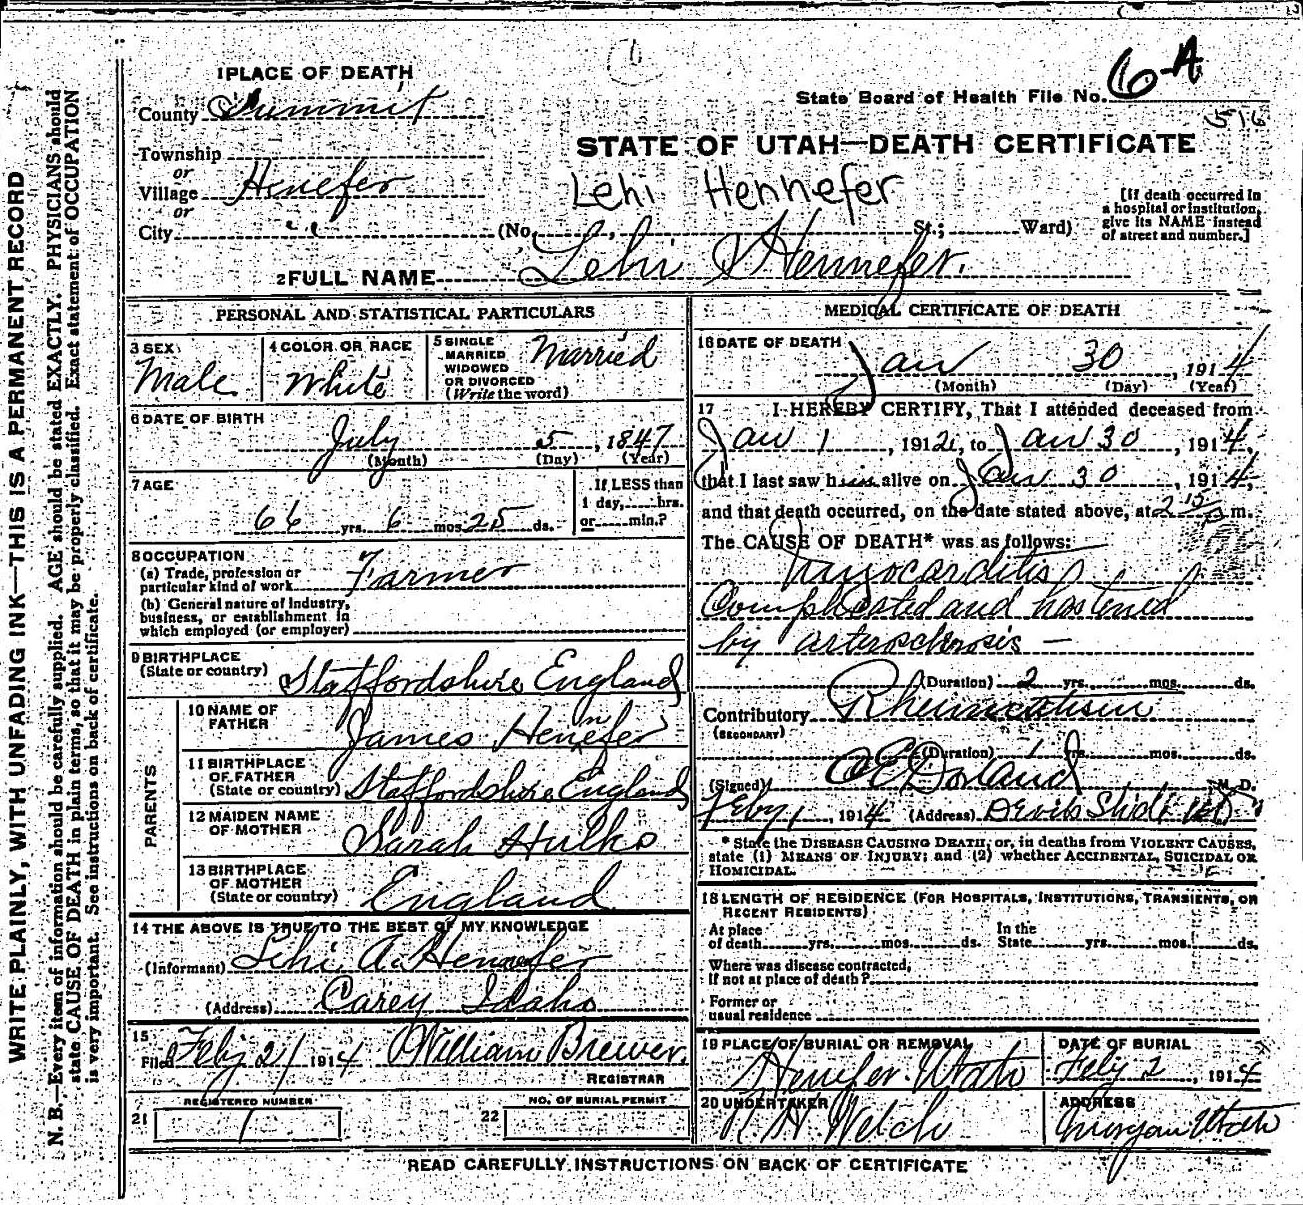 1
6-A
1 PLACE OF DEATH
County Summit
State Board of Health File No.
516
Township
STATE OF UTAH—DEATH CERTIFICATE
or
Village Henefer
Lehi Hennefer
or
City " (No. , St.; Ward)
[If death occurred in
a hospital or institution,
give its NAME instead
of street and number.]
2 FULL NAME Lehi Hennefer.
PERSONAL AND STATISTICAL PARTICULARS
3 SEX Male
4 COLOR OR RACE White
5 SINGLE
MARRIED
WIDOWED
OR DIVORCED
(Write the word)
Married
6 DATE OF BIRTH
July 5, 1847
(Month) (Day) (Year)
7 AGE
66 yrs. 6 mos. 25 ds.
If LESS than
1 day, hrs.
or min.?
8 OCCUPATION
(a) Trade, profession or
particular kind of work Farmer
(b) General nature of Industry,
business, or establishment in
which employed (or employer)
9 BIRTHPLACE
(State or country) Staffordshire England
PARENTS
10 NAME OF
FATHER James Hennefer
11 BIRTHPLACE
OF FATHER
(State or country) Staffordshire England
12 MAIDEN NAME
OF MOTHER Sarah Hulks
13 BIRTHPLACE
OF MOTHER
(State or country) England
14 THE ABOVE IS TRUE TO THE BEST OF MY KNOWLEDGE
(Informant) Lehi A. Hennefer
(Address) Carey Idaho
15
Filed Feby 2/ 1914 William Brewer.
REGISTRAR
21 REGISTERED NUMBER
1
22 NO. OF BURIAL PERMIT
MEDICAL CERTIFICATE OF DEATH
16 DATE OF DEATH
Jan 30, 1914
(Month) (Day) (Year)
17 I HEREBY CERTIFY, That I attended deceased from
Jan 1, 1912, to Jan 30, 1914,
that I last saw him alive on Jan 30, 1914,
and that death occurred, on the date stated above, at 2 15 P m.
The CAUSE OF DEATH* was as follows:
Myocarditis
Complicated and hastened
by arterosclerosis —
(Duration) 2 yrs. mos. ds.
Contributory Rheumatism
(SECONDARY)
(Duration) 1 yrs. mos. ds.
(Signed) M. D.
Feby 1, 1914 (Address) Devils Slide Ut
* State the DISEASE CAUSING DEATH, or, in deaths from VIOLENT CAUSES,
state (1) MEANS OF INJURY; and (2) whether ACCIDENTAL, SUICIDAL OR
HOMICIDAL.
18 LENGTH OF RESIDENCE (FOR HOSPITALS, INSTITUTIONS, TRANSIENTS, OR
RECENT RESIDENTS)
At place
of death yrs. mos. ds.
In the
State yrs. mos. ds.
Where was disease contracted,
if not at place of death?
Former or
usual residence
19 PLACE OF BURIAL OR REMOVAL
Henefer. Utah
DATE OF BURIAL
Feby 2, 1914
20 UNDERTAKER
Welch
ADDRESS
Morgan Utah
READ CAREFULLY INSTRUCTIONS ON BACK OF CERTIFICATE
WRITE PLAINLY, WITH UNFADING INK—THIS IS A PERMANENT RECORD
N. B.—Every item of information should be carefully supplied. AGE should be stated EXACTLY. PHYSICIANS should
state CAUSE OF DEATH in plain terms, so that it may be properly classified. Exact statement of OCCUPATION
is very important. See instructions on back of certificate.